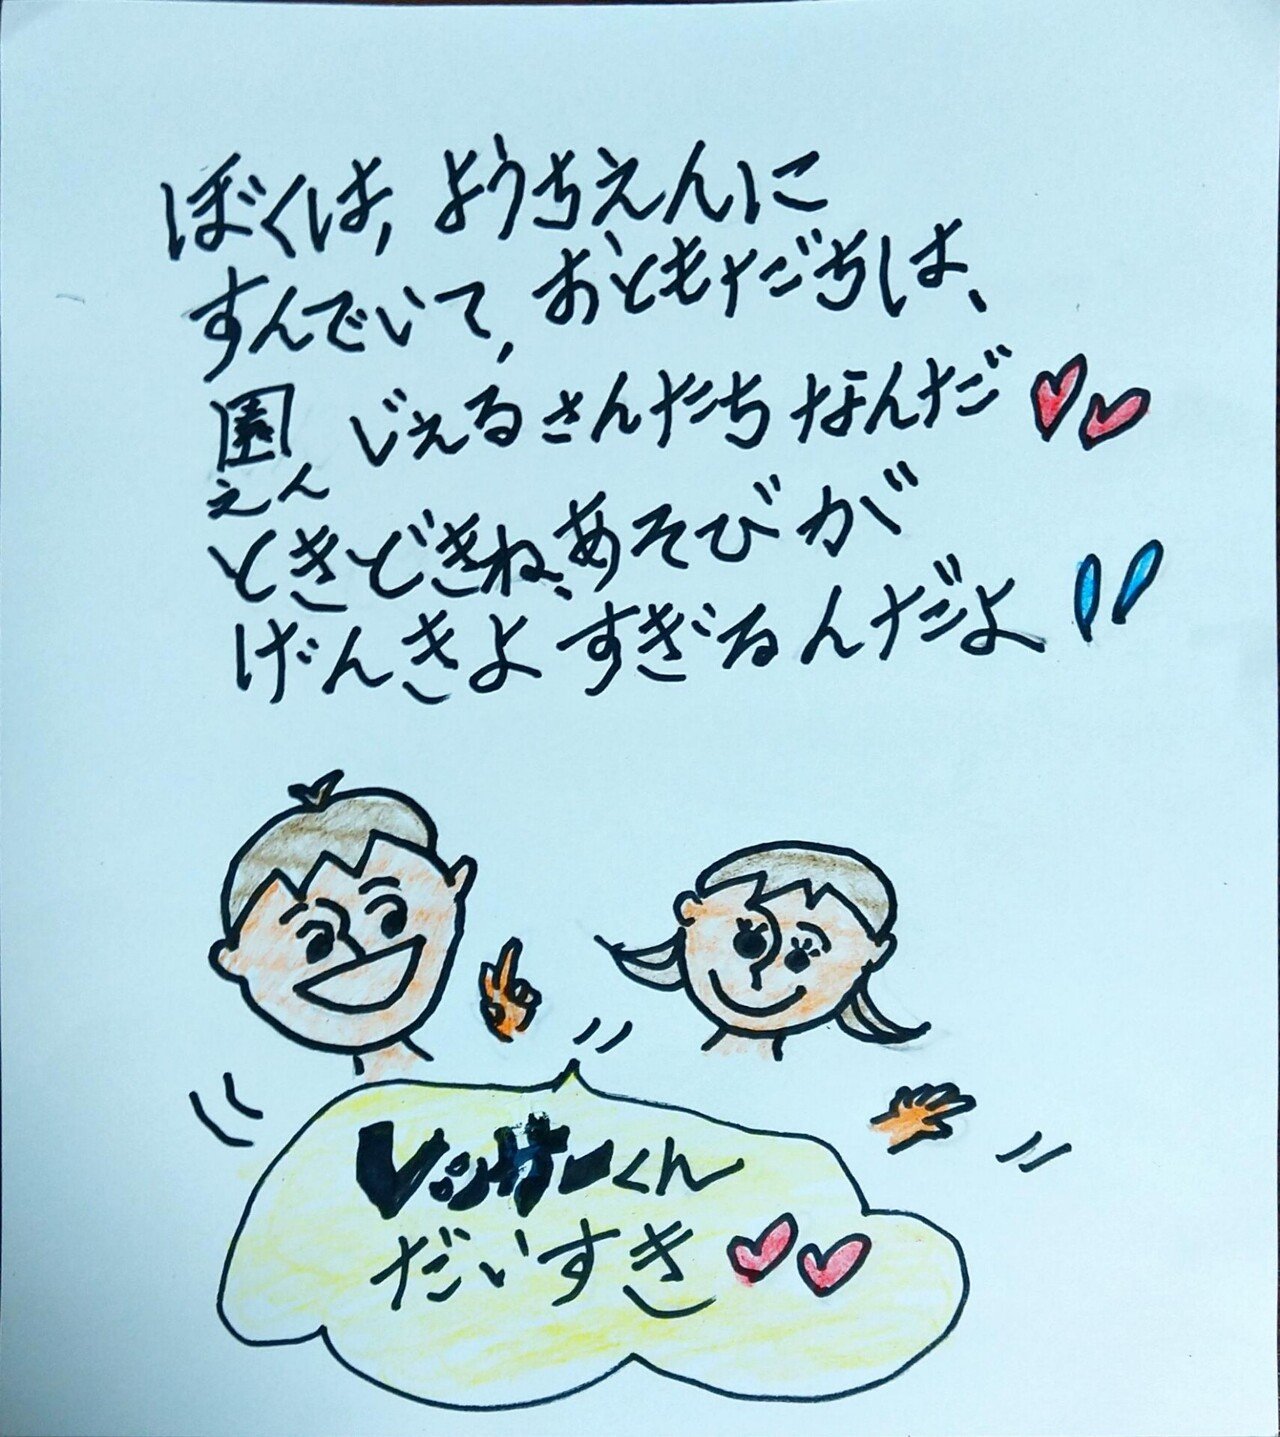 ぼくは,ようちえんに
すんでいて,おともだちは、
園じぇるさんたちなんだ
えん
ときどきね、あそびが
げんきよすぎるんだよ
レンジャーくん
だいすき